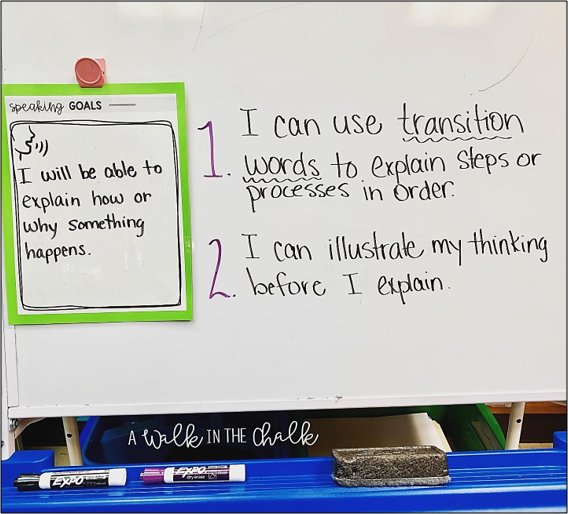 speaking GOALS
I will be able to
explain how or
why something
happens.
1. I can use transition
words to explain steps or
processes in order.
2. I can illustrate my thinking
before I explain.
A Walk IN THE Chalk
EXPO
EXPO
dry erase